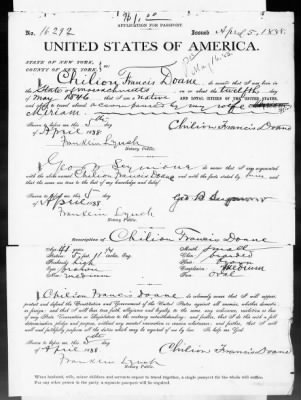 APPLICATION FOR PASSPORT.
No. 16292 Issued April 5, 1888.
UNITED STATES OF AMERICA.
STATE OF NEW YORK,
COUNTY OF NEW YORK,
Chilion Francis Doane do swear that I was born in
the State of Massachusetts on or about the twelfth day
of May 1846 that I am a native AND LOYAL CITIZEN OF THE UNITED STATES,
and about to travel abroad accompanied by my wife
Miriam.
Sworn to before me, this 5th day
of April 1888 Chilion Francis Doane
Franklin Lynch
Notary Public.
Geo B Seymour do swear that I am acquainted
with the above named Chilion Francis Doane and with the facts stated by him and
that the same are true to the best of my knowledge and belief
Sworn to before me, this 5 day
of April 1888 Geo B Seymour
Franklin Lynch
Notary Public.
Description of Chilion Francis Doane
Age: 41
Stature: 5 feet 11 inches, Eng.
Forehead: high
Eyes: brown
Nose: medium
Mouth: small
Chin: bearded
Hair: brown
Complexion: medium
Face: Oval
I, Chilion Francis Doane do solemnly swear that I will support,
protect and defend the Constitution and Government of the United States against all enemies, whether domestic
or foreign; and that I will bear true faith, allegiance and loyalty to the same, any ordinance, resolution or law
of any State, Convention or Legislature to the contrary notwithstanding; and further, that I do this with a full
determination, pledge and purpose, without any mental reservation or evasion whatsoever; and further, that I will
well and faithfully perform all the duties which may be required of me by law. So help me God.
Sworn to before me, this 5th day
of April 1888 Chilion Francis Doane
Franklin Lynch
Notary Public.
When husband, wife, minor children and servants expect to travel together, a single passport for the whole will suffice.
For any other person in the party a separate passport will be required.